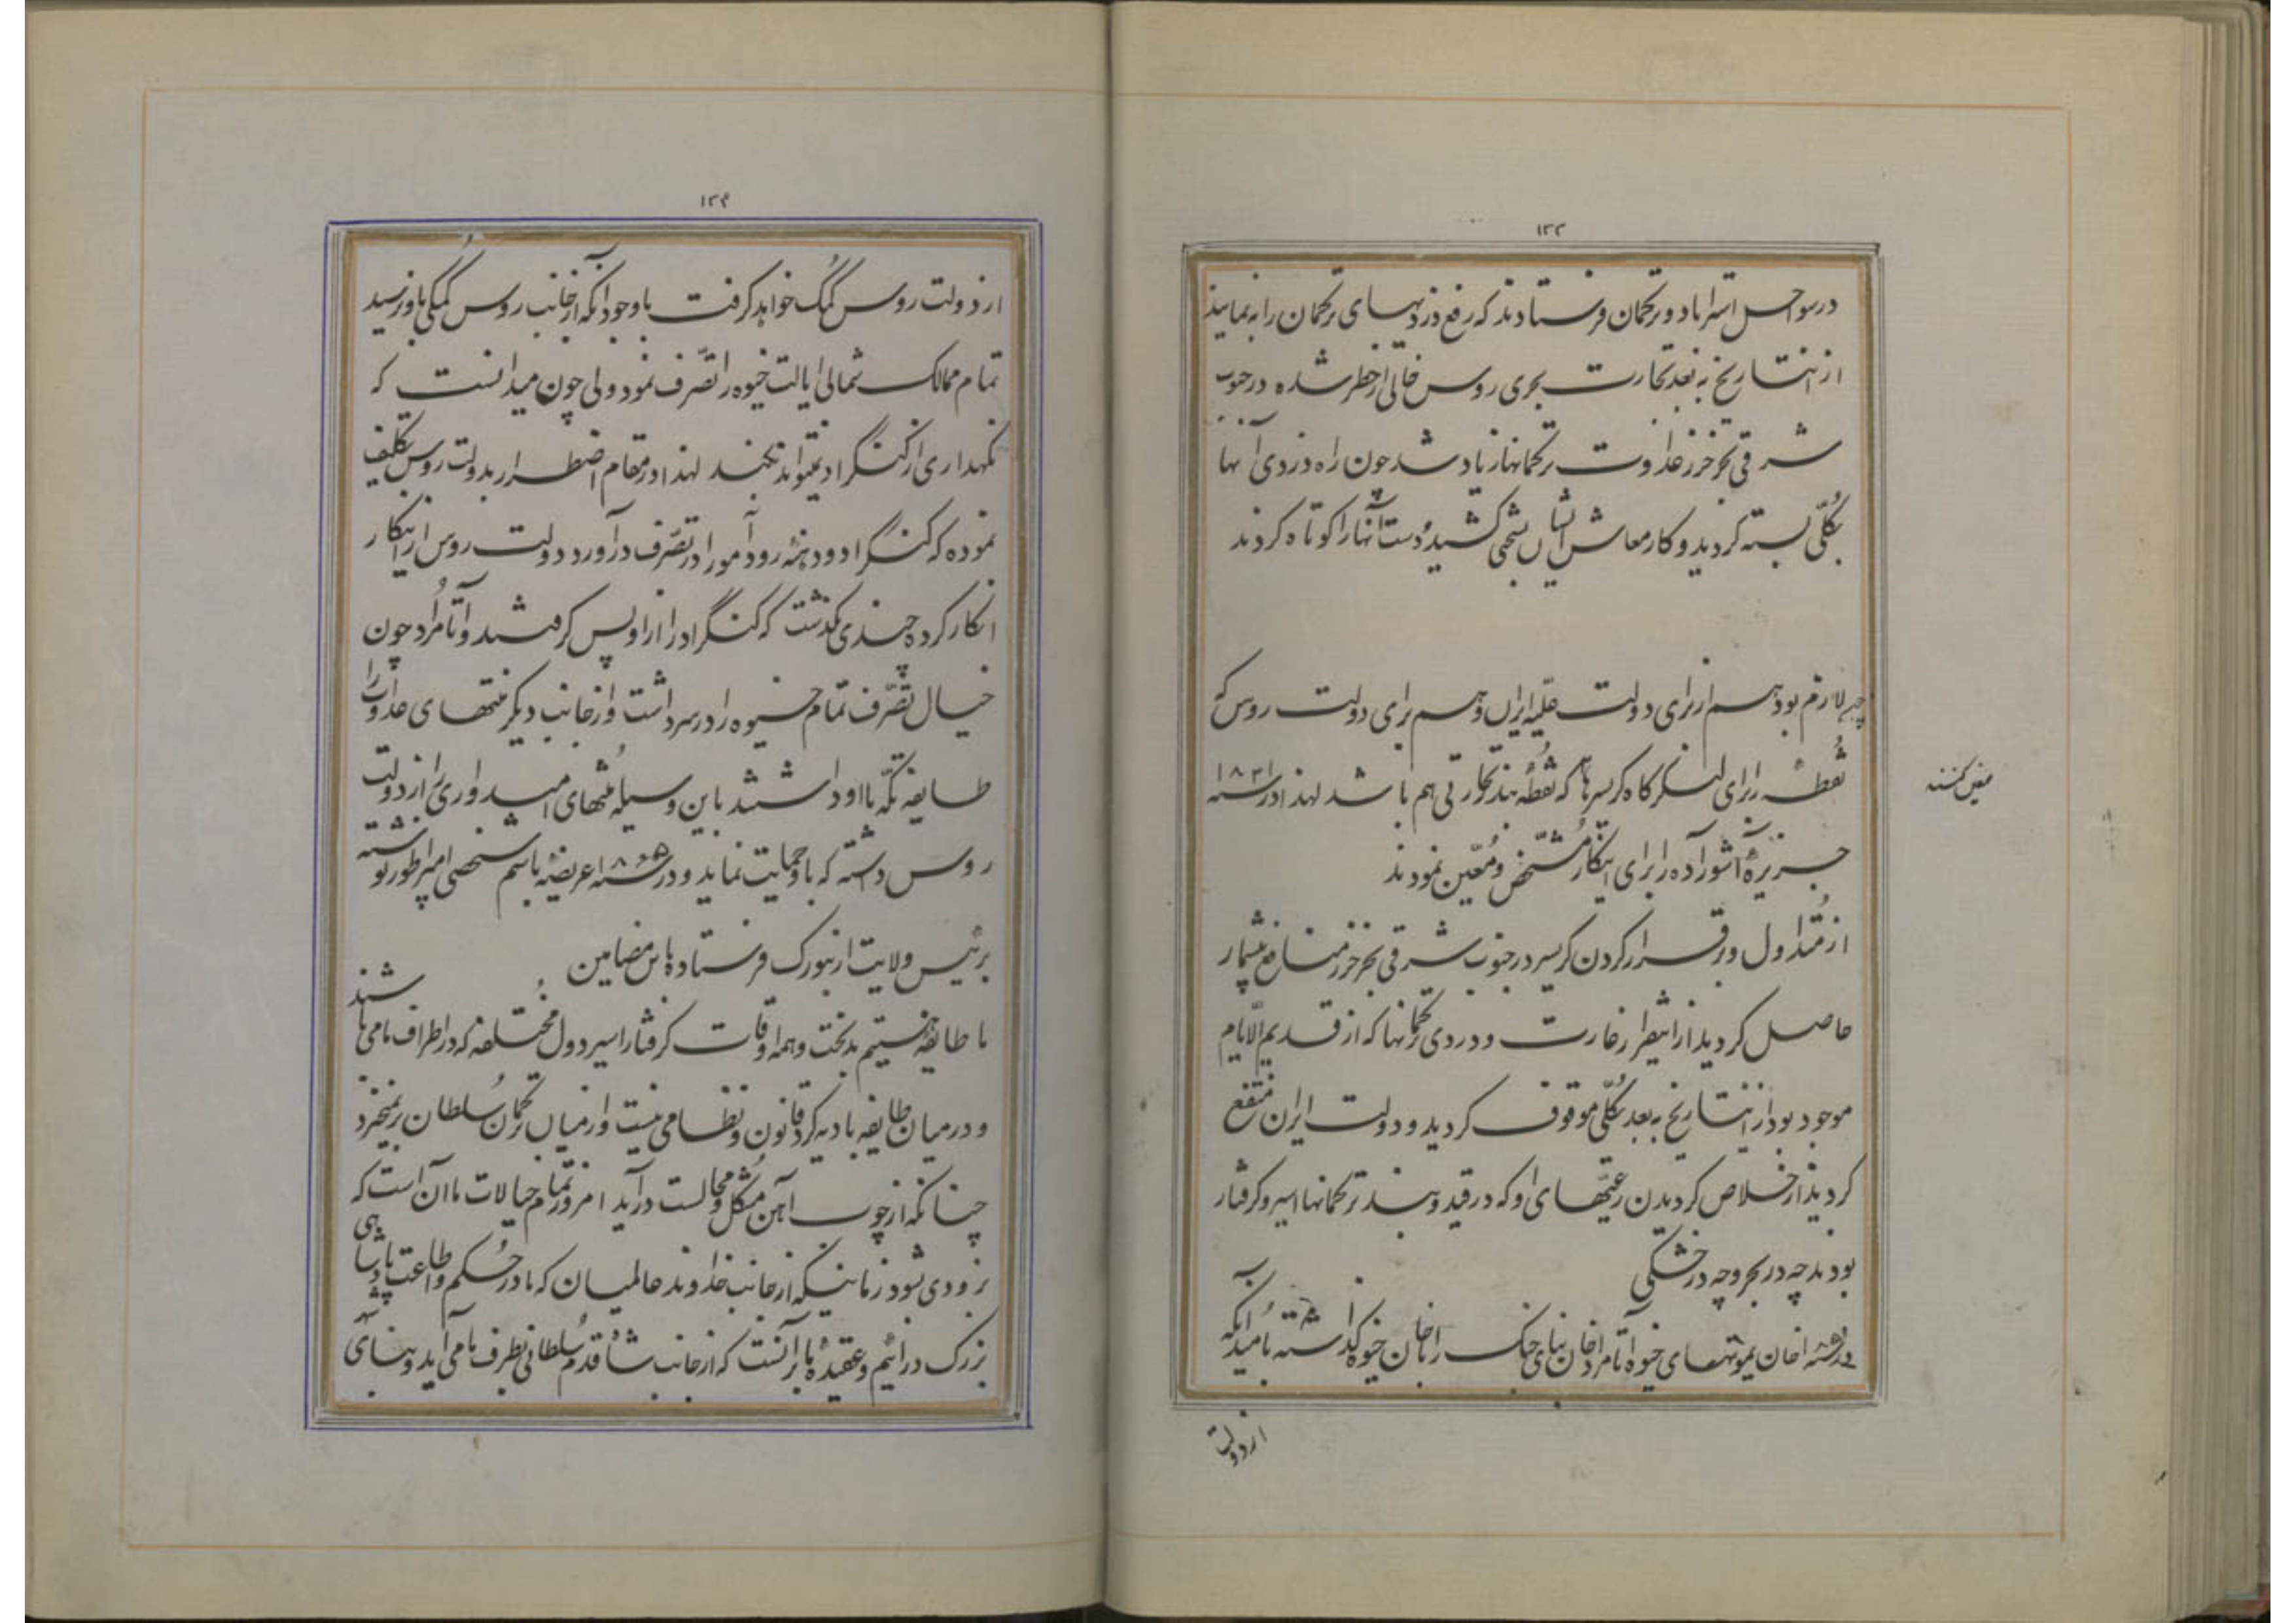 ۱۳۳
در سواحل استراباد و ترکمان فرستادند که رفع دزدیهای ترکمان را بنمایند
از اینتاریخ به بعد تجارت بحری روس خالی از خطر شده در جنوب
شرقی بحر خزر عداوت ترکمانها زیاد شد چون راه دزدی آنها
بکلّی بسته گردید و کار معاش ایشان بسختی کشید و دست آنها را کوتاه کردند
چه لازم بود هم از برای دولت علیه ایران و هم برای دولت روس که
نقطهٔ را برای لنگرگاه کرسیرها که نقطهٔ بند تجارتی هم باشد لهذا در سنه ۱۸۴۱
معین کنند
جزیرهٔ آشوراده را برای اینکار مشخّص و معیّن نمودند
از متداول و برقرار کردن کرسیر در جنوب شرقی بحر خزر منافع بیشمار
حاصل گردید از اینقرار غارت و دزدی ترکمانها که از قدیم الایام
موجود بود از اینتاریخ به بعد بکلّی موقوف گردید و دولت ایران منتفع
گردید از خلاص گردیدن رعیّتهای او که در قید و بند ترکمانها اسیر و گرفتار
بودند چه در بحر و چه در خشکی
در سنه ۱۸۵۵ خان یموتهای خیوه آتامراد خان بنای جنگ را با خان خیوه گذاشته بامید آنکه
از دولت
۱۳۴
از دولت روس کمک خواهد گرفت باوجود آنکه از جانب روس کمکی باو نرسید
تمام ممالک شمالی ایالت خیوه را تصرّف نمود ولی چون میدانست که
نگهداری از کنگراد نمیتواند بکند لهذا در مقام اضطرار بدولت روس تکلیف
نموده که کنگراد و دهنهٔ رود آمو را در تصرّف درآورد دولت روس از اینکار
انکار کرده چندی نگذشت که کنگراد را از او پس گرفتند و آتامراد چون
خیال تصرّف تمام خیوه را در سر داشت و از جانب دیگر منتهای عداوت را
طایفه تکّه با او داشتند باین وسیله منتهای امیدواری را از دولت
روس داشته که باو حمایت نماید و در سنه ۱۸۶۵ عریضهٔ باسم شخصی امپراطور نوشته
برئیس ولایت ارنبورک فرستاده باین مضامین
ما طایفهٔ هستیم بدبخت و همه اوقات گرفتار اسیر دول مختلفه که در اطراف ما می باشند
و در میان طایفه بادیه گرد قانون و نظامی نیست و از میان ترکمان سلطان برنمیخیزد
چنانکه از چوب آهن مشکل و محالست درآید امروز تمام خیالات ما آن است که
بزودی شود زمانیکه از جانب خداوند عالمیان که ما در حکم و اطاعت پادشاهی
بزرگ درائیم و عقیدهٔ ما برآنست که از جانب شما قدم سلطانی بطرف ما می آید و بنای